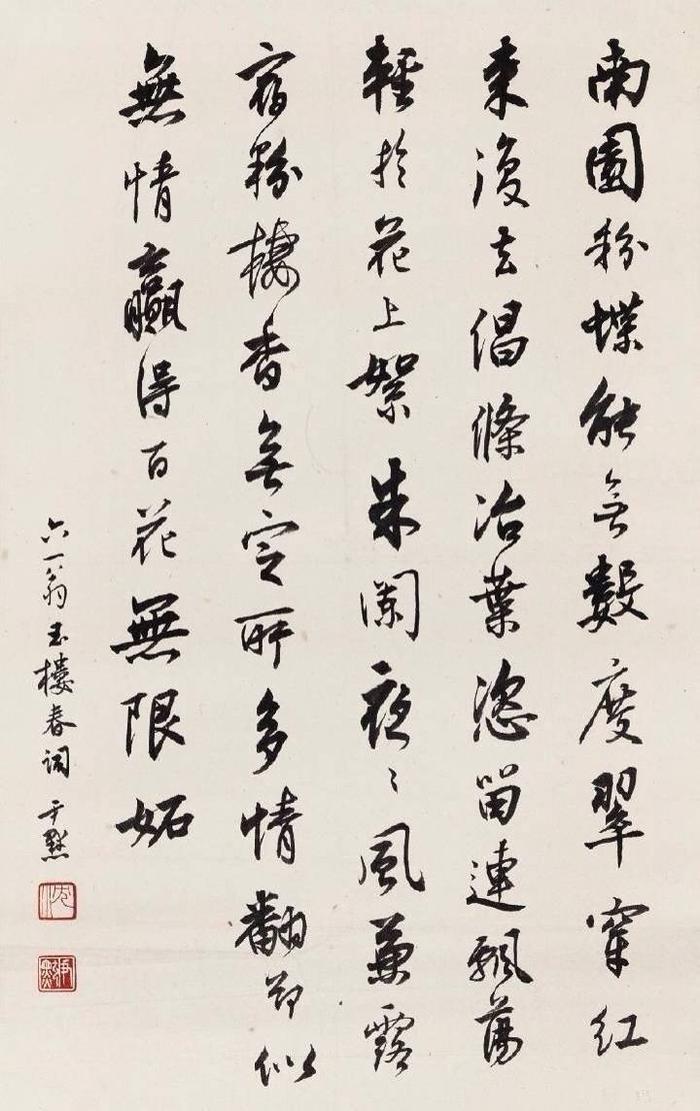 南園粉蝶能無數度翠穿紅
来復去倡條冶葉恣留連飄蕩
輕於花上絮朱闌夜〻風兼露
宿粉棲香無定所多情翻却似
無情贏得百花無限妬
六一翁玉樓春詞 尹默
沈
尹默